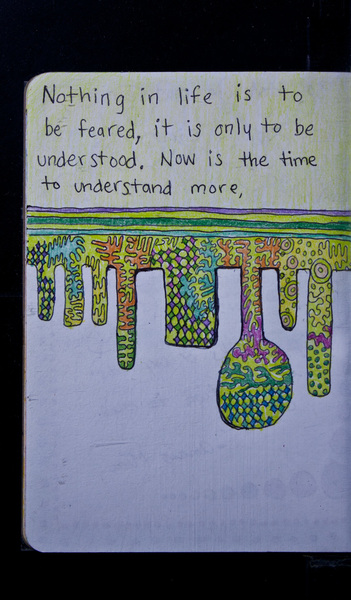 Nothing in life is to
be feared, it is only to be
understood. Now is the time
to understand more,